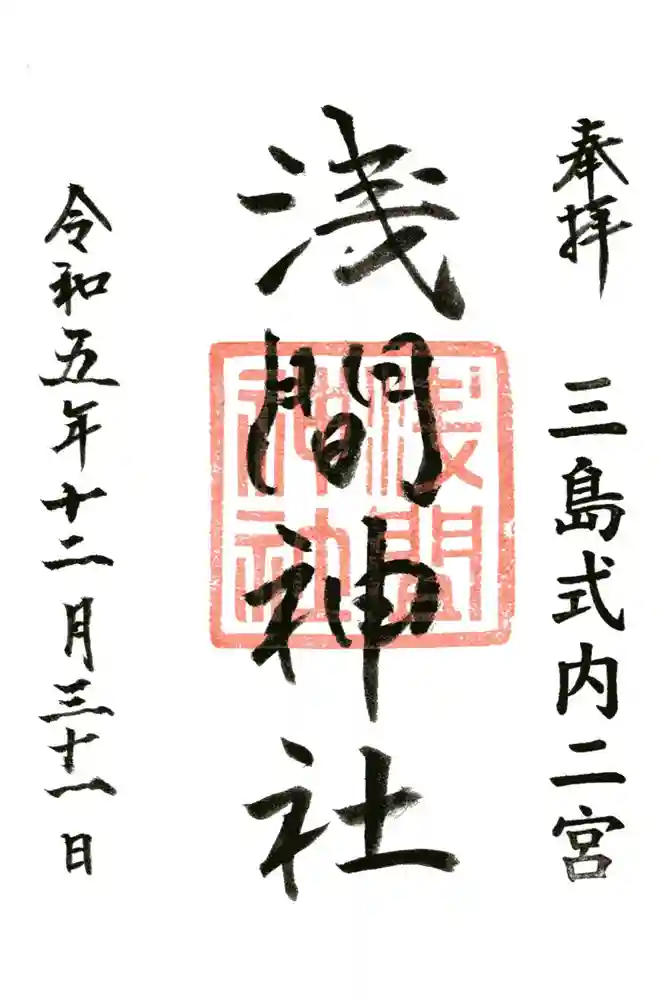 奉拝　三島式内二宮
浅間神社
浅間神社
令和五年十二月三十一日